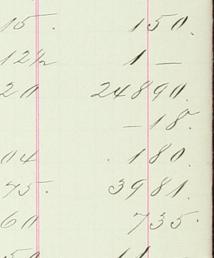 15. 150.
12½ 1 —
20 24890.
— 18.
04 . 180.
75. 3981.
60 735.
50 11